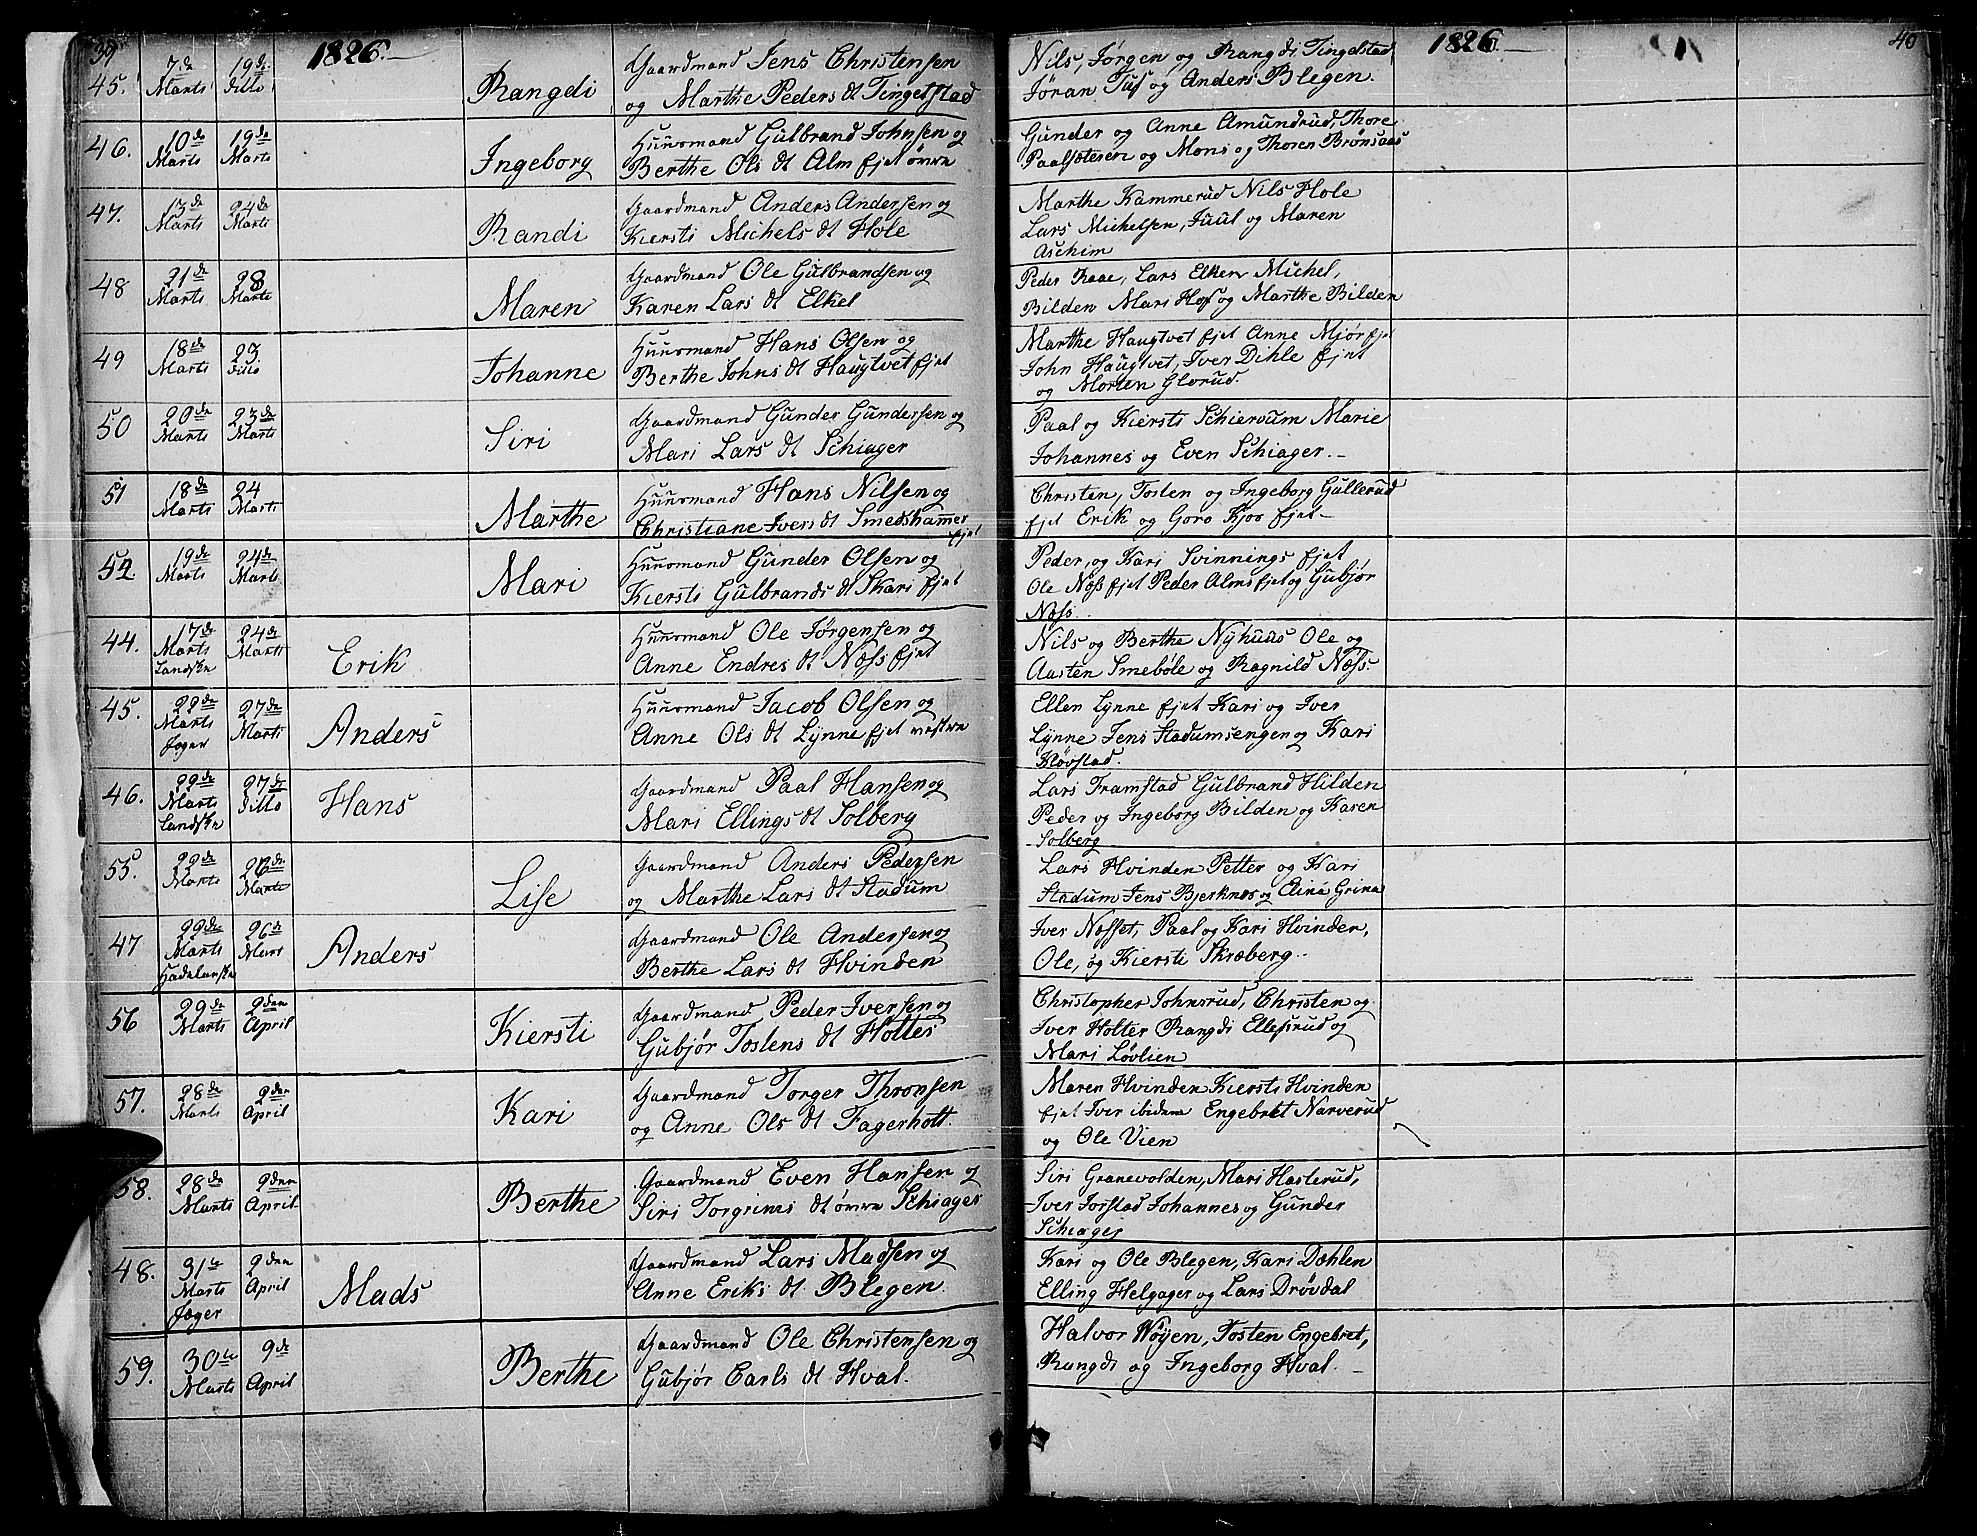 39
1826.
45. 7de Marts 19de Ditto Rangdi Gaardmand Jens Christensen
og Marthe Peders dt Tingelstad
46. 10de Marts 19de Marts Ingeborg Huusmand Gulbrand Johnsen og
Berthe Ols dt Alm Ejet øvre
47. 13de Marts 24de Marts Randi Gaardmand Anders Andersen og
Kiersti Michels dt Hole
48 21de Marts 28 Marts Maren Gaardmand Ole Gulbrandsen og
Karen Lars dt Elkel
49 18de Marts 23 Ditto Johanne Huusmand Hans Olsen og
Berthe Johns dt Haugtvet Ejet
50 20de Marts 23de Marts Siri Gaardmand Gunder Gundersen og
Mari Lars dt Schiager
51 18de Marts 24 Marts Marthe Huusmand Hans Nilsen og
Christiane Ivers dt Smedshammer
Ejet
52 19de Marts 24de Marts Mari Huusmand Gunder Olsen og
Kiersti Gulbrands dt Skari Ejet
44. 17de Marts Landske 24de Marts Erik Huusmand Ole Jørgensen og
Anne Endres dt Næss Ejet
45. 22de Marts Jæger 27de Marts Anders Huusmand Jacob Olsen og
Anne Ols dt Lynne Ejet vestre
46. 22de Marts Landske 27de Ditto Hans Gaardmand Paal Hansen og
Mari Ellings dt Solberg
55. 22de Marts 26de Marts Lise Gaardmand Anders Pedersen
og Marthe Lars dt Stadum
47 22de Marts Hadelanske 26de Mart Anders Gaardmand Ole Andersen og
Berthe Lars dt Hvinden
56 29de Marts 2den April Kiersti Gaardmand Peder Iversen og
Gubjør Tostens dt Holter
57. 28de Marts 2den April Kari Gaardmand Torger Thronsen
og Anne Ols dt Fagerhott.
58. 28de Marts 2den April Berthe Gaardmand Even Hansen og
Siri Torgrims dt øvre Schiager
48. 31te Marts Jæger 2den April Mads Gaardmand Lars Madsen og
Anne Eriks dt Blegen.
59. 30te Marts 9de April Berthe Gaardmand Ole Christensen og
Gubjør Carls dt Hval.
1826
40
Nils, Jørgen og Rangdi Tingelstad
Jøran Tuf og Anders Blegen.
Gunder og Anne Amundrud, Thore
Paalsetesen og Mons og Thoren Brønsaas
Marthe Kammerud Nils Hole
Lars Michelsen, Juul og Maren
Aschim
Peder Raae, Lars Elken Michel,
Bilden Mari Hof og Marthe Bilden
Marthe Haugtvet Ejet Anne Mjør Ejet
John Haugtvet, Iver Dihle Ejet
og Morten Glorud.
Paal og Kiersti Schiervum Marie
Johannes og Even Schiager.
Christen, Tosten og Ingeborg Gullerud
Ejet Erik og Goro Kjos Ejet
Peder, og Kari Svinnings Ejet
Ole Næss Ejet Peder Alms Ejet og Gubjør
Næss.
Nils og Berthe Nyhuus Ole og
Aasten Smebøle og Ragnild Næss.
Ellen Lynne Ejet Kari og Iver
Lynne Jens Stadumsengen og Kari
Kløvstad.
Lars Framstad Gulbrand Hilden
Peder og Ingeborg Bilden og Karen
Solberg
Lars Hvinden Petter og Kari
Stadum Jens Bjerknes og Elina Grina
Iver Næsset, Paal og Kari Hvinden,
Ole, og Kiersti Skræberg.
Christopher Johnsrud, Christen og
Iver Holter Rangdi Ellefsrud og
Mari Løvlien
Maren Hvinden Kiersti Hvinden
Ejet Iver ibidem Engebret Narverud
og Ole Vien
Siri Granevolden, Mari Hasterud,
Iver Jorstad Johannes og Gunder
Schiager
Kari og Ole Blegen, Kari Dæhlen
Elling Helgager og Lars Drøvdal
Halvor Nøyen, Tosten Engebret,
Rangdi og Ingeborg Hval.